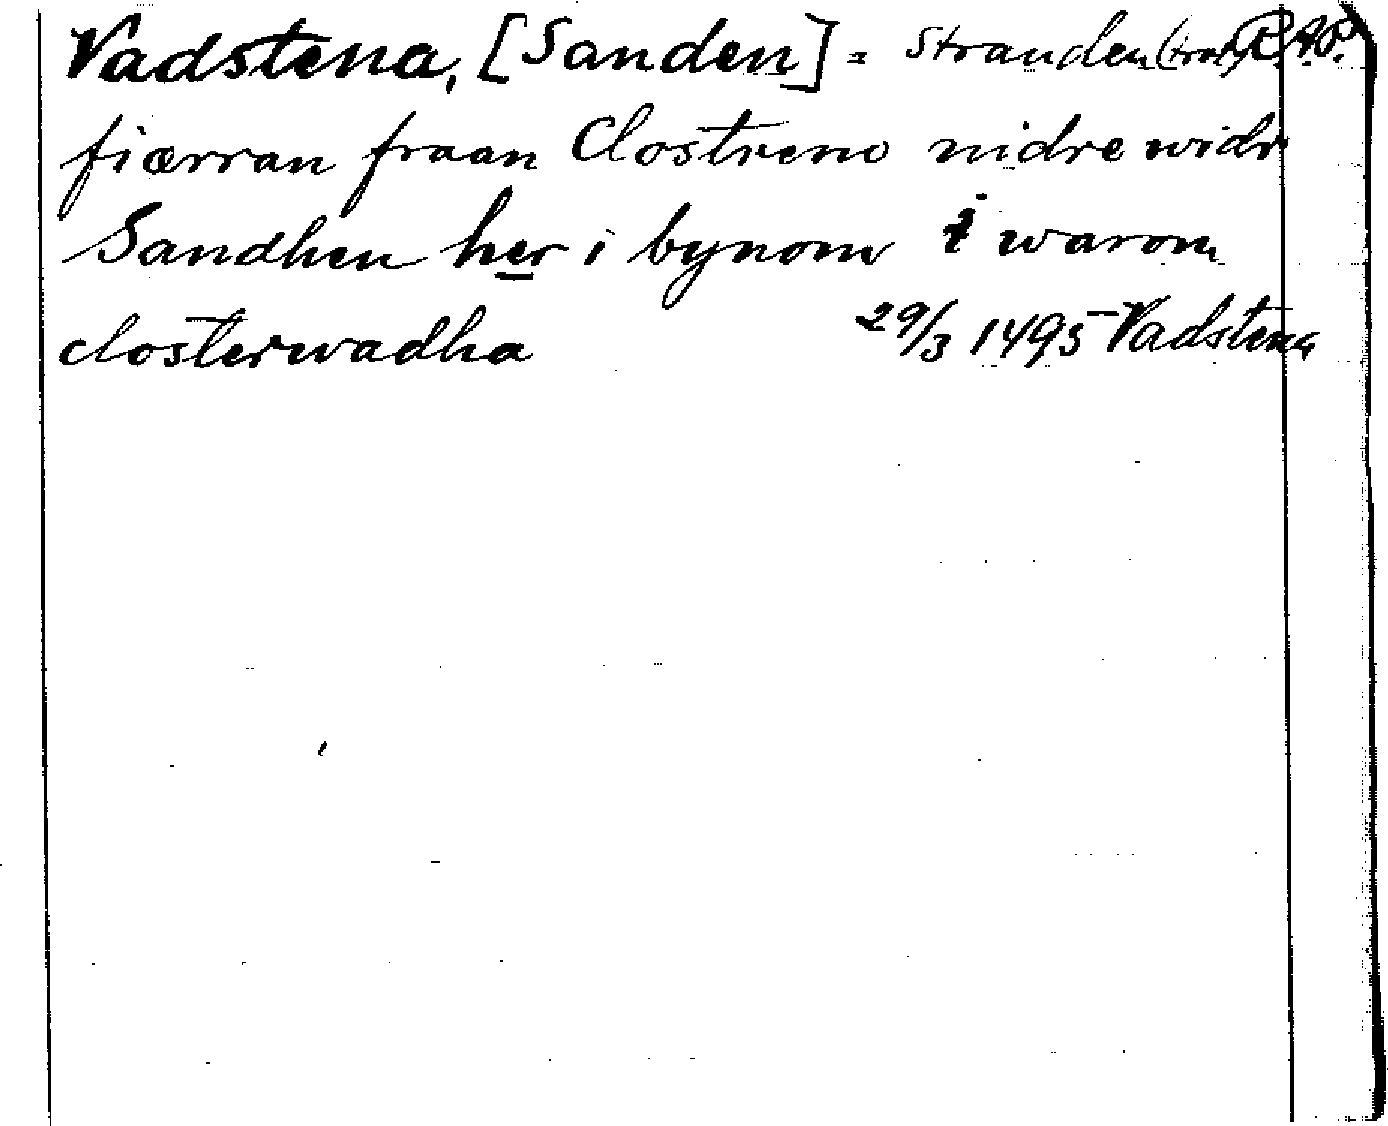 Vadstena, [Sanden] = Stranden (trol)
fiærran fraan Clostreno nidre widr
Sandhen her i bynom i warom
closterwadha 29/3 1495 Vadstena